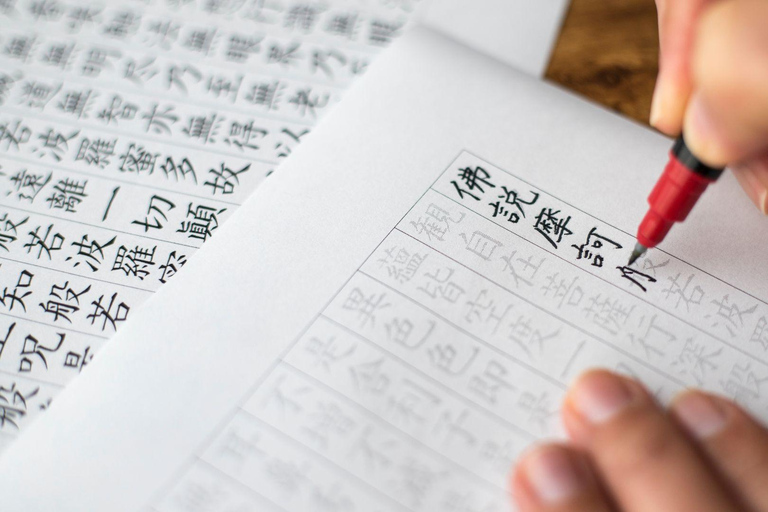 佛説摩訶般若波羅
観自在菩薩行深般
蘊皆空度一
異色色即是
是舎利子是
不増不
無眼界乃
無明尽乃至無老
道無智亦無得以
若波羅蜜多故
遠離一切顛
般若波羅蜜
知般若
上呪是
般